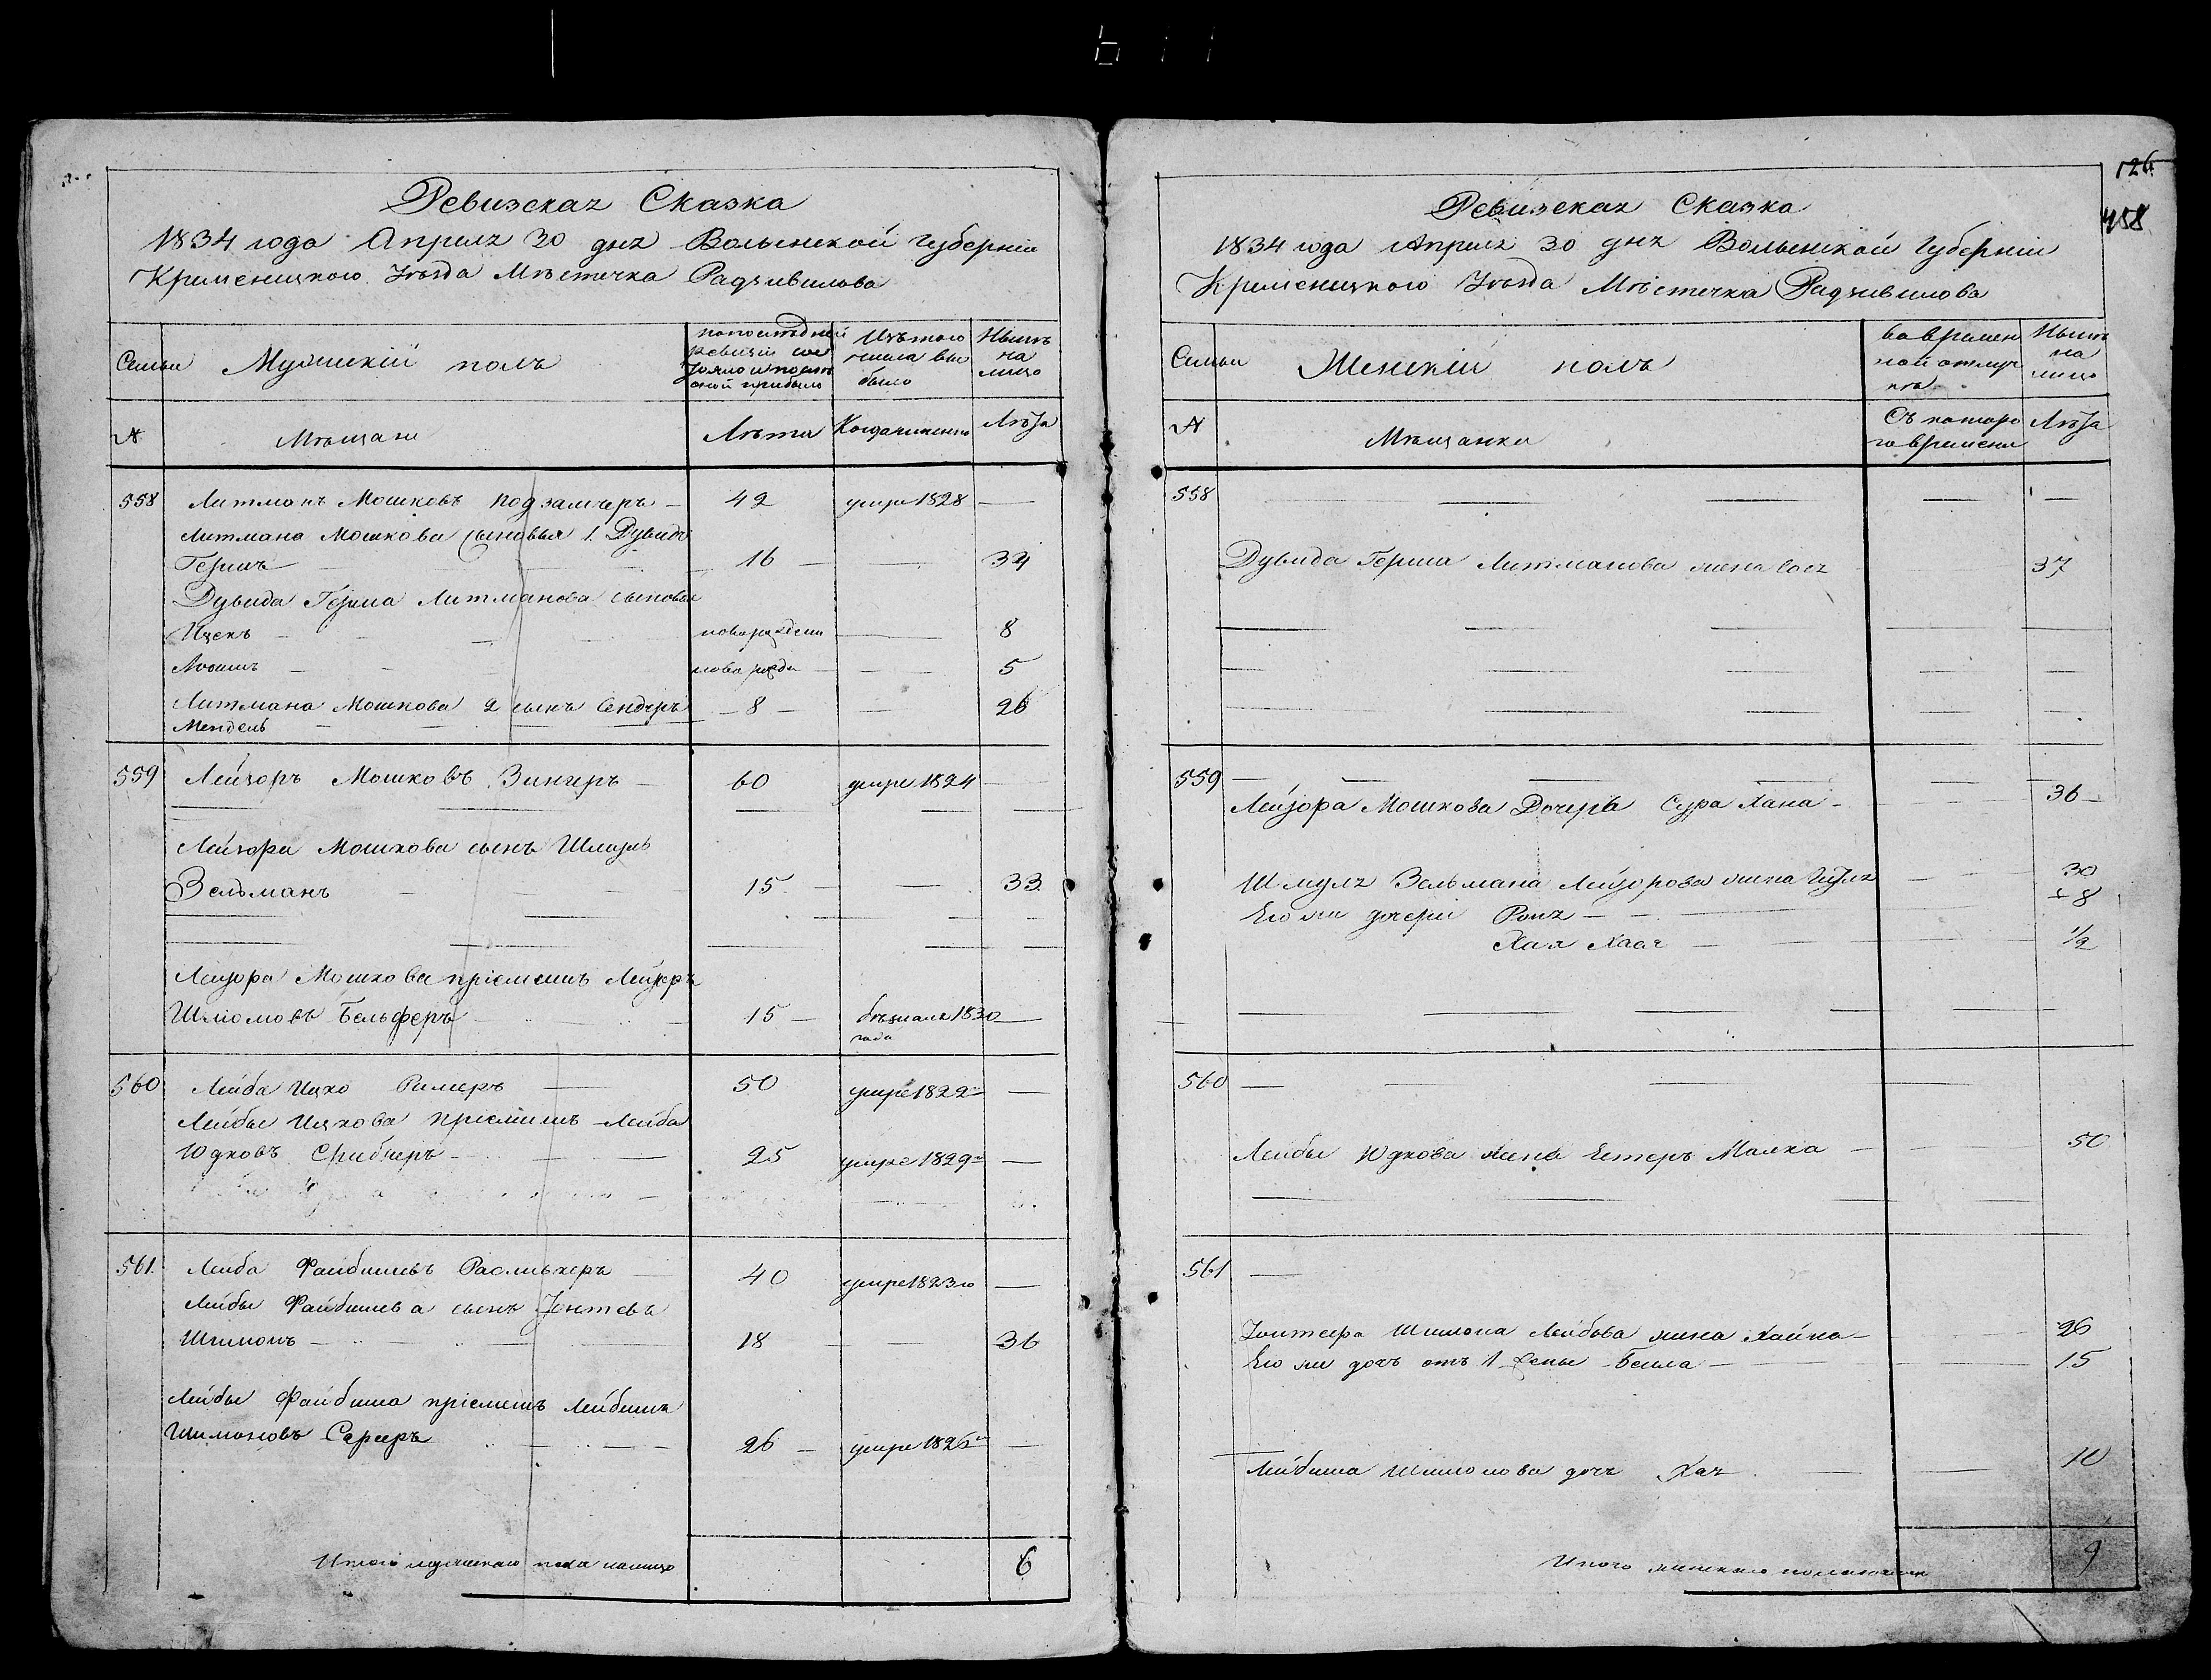 126
458
Ревизская Сказка
1834 года Апреля 30 дня Волынской Губерніи
Кременецкого Уезда Местечка Радзивилова
Семьи
Мужскій полъ
по последней ревизіи состояло и после оной прибыло
Изъ того числа выбыло
Ныне на лицо
№
Мещане
Лета
Когда именно
Лета
558 Литманъ Мошковъ Подзамчеръ 42 умре 1828
Литмана Мошкова сыновья 1. Дувидъ
Гершъ 16 34
Дувида Герша Литманова сыновья
Ицекъ новорожденъ 8
новорожде 5
Литмана Мошкова 2 сынъ Сендеръ 8 26
Мендель
559 Лейзоръ Мошковъ Зингеръ 60 умре 1824
Лейзора Мошкова сынъ Шмуль
Зельманъ 15 33
Лейзора Мошкова пріемышъ Лейзоръ
Шліомовъ Бельферъ 15 бежалъ 1830
года
560 Лейба Ицко Римеръ 50 умре 1822
Лейбы Ицкова пріемышъ Лейба
Юдковъ 25 умре 1829
561. Лейба Файбишевъ 40 умре 1823го
Лейбы Файбишева сынъ Іонтевъ
Шимонъ 18 36
Лейбы Файбиша пріемышъ Лейбишъ
Шимоновъ 26 умре 1826
Итого мужскаго пола налицо 6
Ревизская Сказка
1834 года Апреля 30 дня Волынской Губерніи
Кременецкого Уезда Местечка Радзивилова
Семьи
Женскій полъ
во временной отлучке
Ныне на лицо
№
Мещанки
Съ котораго времени
Лета
558
Дувида Герша Литманова жена 37
559
Лейзора Мошкова Дочерь Сура Хана 36
Шмуля Зельмана Лейзорова жена 30
Его же дочери Роня 8
Хая 1/2
560
Лейбы Юдкова жена Естеръ Малка 50
561
Іонтефа Шимона Лейбова жена Хайка 26
Его же дочь отъ 1 жены Бейла 15
Лейбиша Шимонова дочь Хая 10
Итого женскаго пола налицо 9